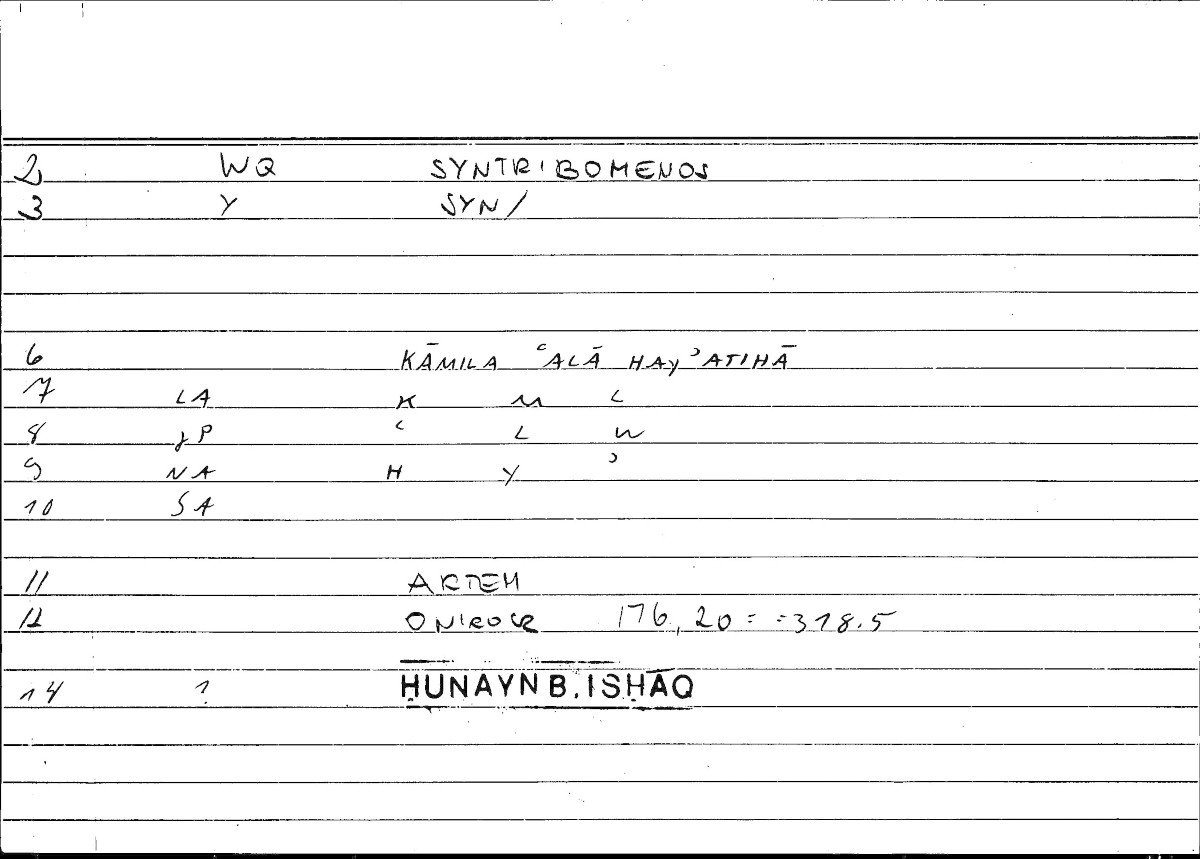 2 WQ SYNTRIBOMENOS
3 Y SYN/
6 KĀMILA ʿALĀ HAYʾATIHĀ
7 LA K M L
8 JP ʿ L W
9 NA H Y ʾ
10 SA
11 ARTEM
12 ONIROCR 176,20 = =318.5
14 1 ḤUNAYN B. ISḤĀQ